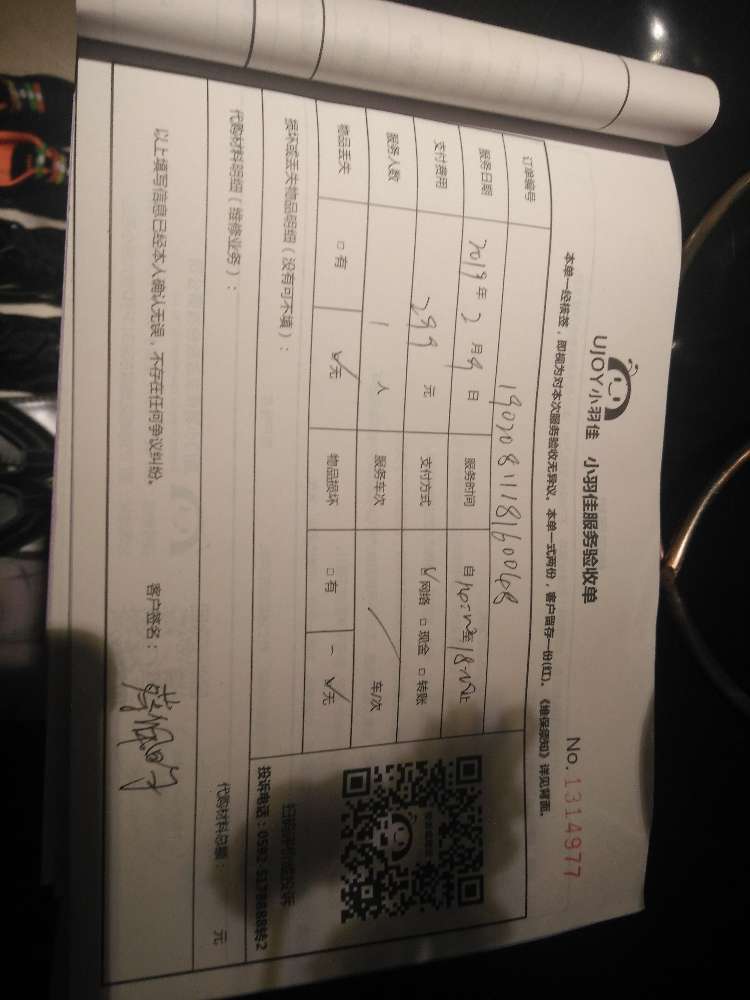 UJOY小羽佳 小羽佳服务验收单
No.1314977
本单一经核签，即视为对本次服务验收无异议。本单一式两份，客户留存一份(红)。《维保须知》详见背面。
订单编号 1902081118160068
服务日期 2019年2月9日 服务时间 自 至18 止
支付费用 299元 支付方式 ☑网络 □现金 □转账
服务人数 1人 服务车次 / 车/次
物品丢失 □有 ☑无 物品损坏 □有 ☑无
损坏或丢失物品明细（没有可不填）：
扫描评价或投诉
投诉电话：0592-5178888转2
代购材料明细（维修业务）：
代购材料总额： 元
以上填写信息已经本人确认无误，不存在任何争议纠纷。
客户签名：